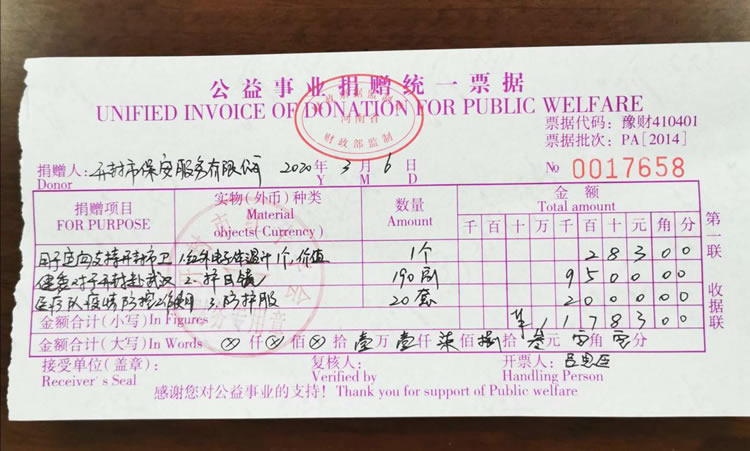 公益事业捐赠统一票据
UNIFIED INVOICE OF DONATION FOR PUBLIC WELFARE
河南省
财政部监制
票据代码：豫财410401
票据批次：PA[2014]
捐赠人：开封市保安服务有限公司 2020年 3月 6日 № 0017658
Donor Y M D
捐赠项目 实物（外币）种类 数量 金额
FOR PURPOSE Material objects(Currency) Amount Total amount
千百十万千百十元角分
用于定向支持开封市卫 1.红外电子体温计1个,价值 1个 28300
健委对于开封赴武汉 2.护目镜 190副 950000
医疗队疫情防控工作使用 3.防护服 20套 200000
金额合计（小写）In Figures ¥1178300
金额合计（大写）In Words ⊗仟⊗佰⊗拾壹万壹仟柒佰捌拾叁元零角零分
接受单位（盖章）： 复核人： 开票人：
Receiver's Seal Verified by Handling Person
感谢您对公益事业的支持！Thank you for support of Public welfare
第一联
收据联